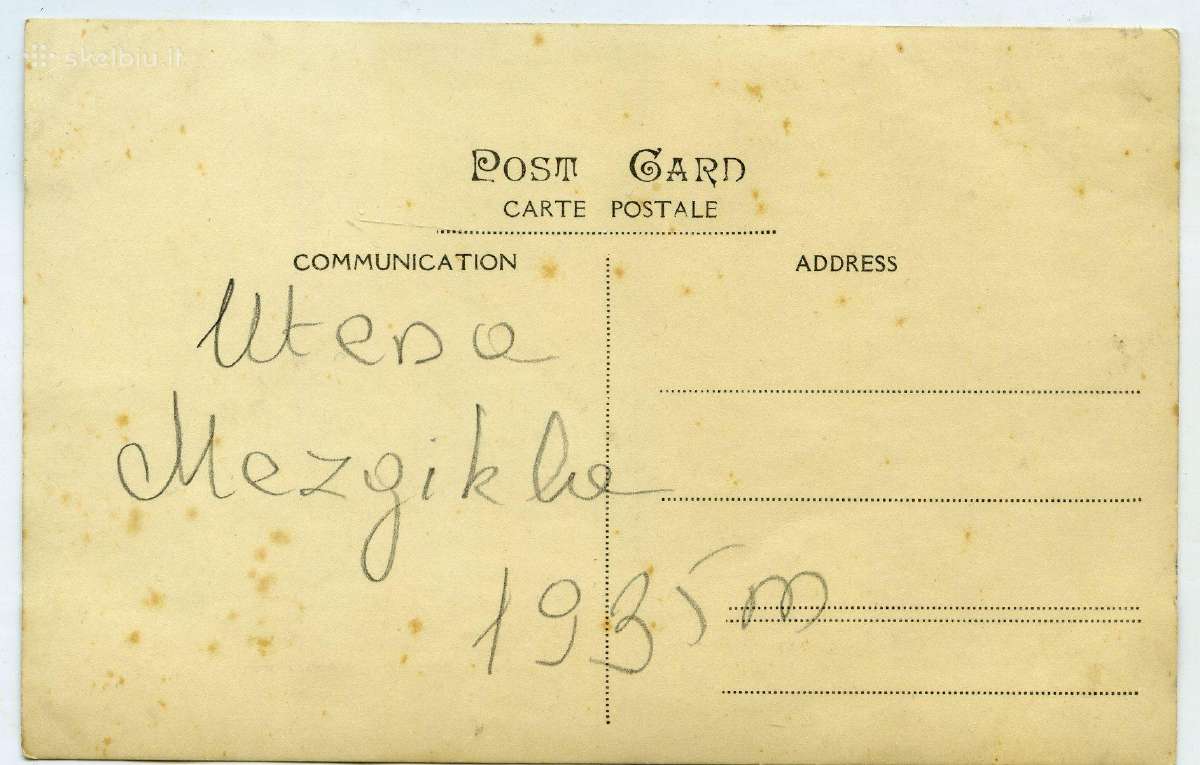 skelbiu.lt
POST CARD
CARTE POSTALE
COMMUNICATION
ADDRESS
Utena
Mezgikla
1935 m